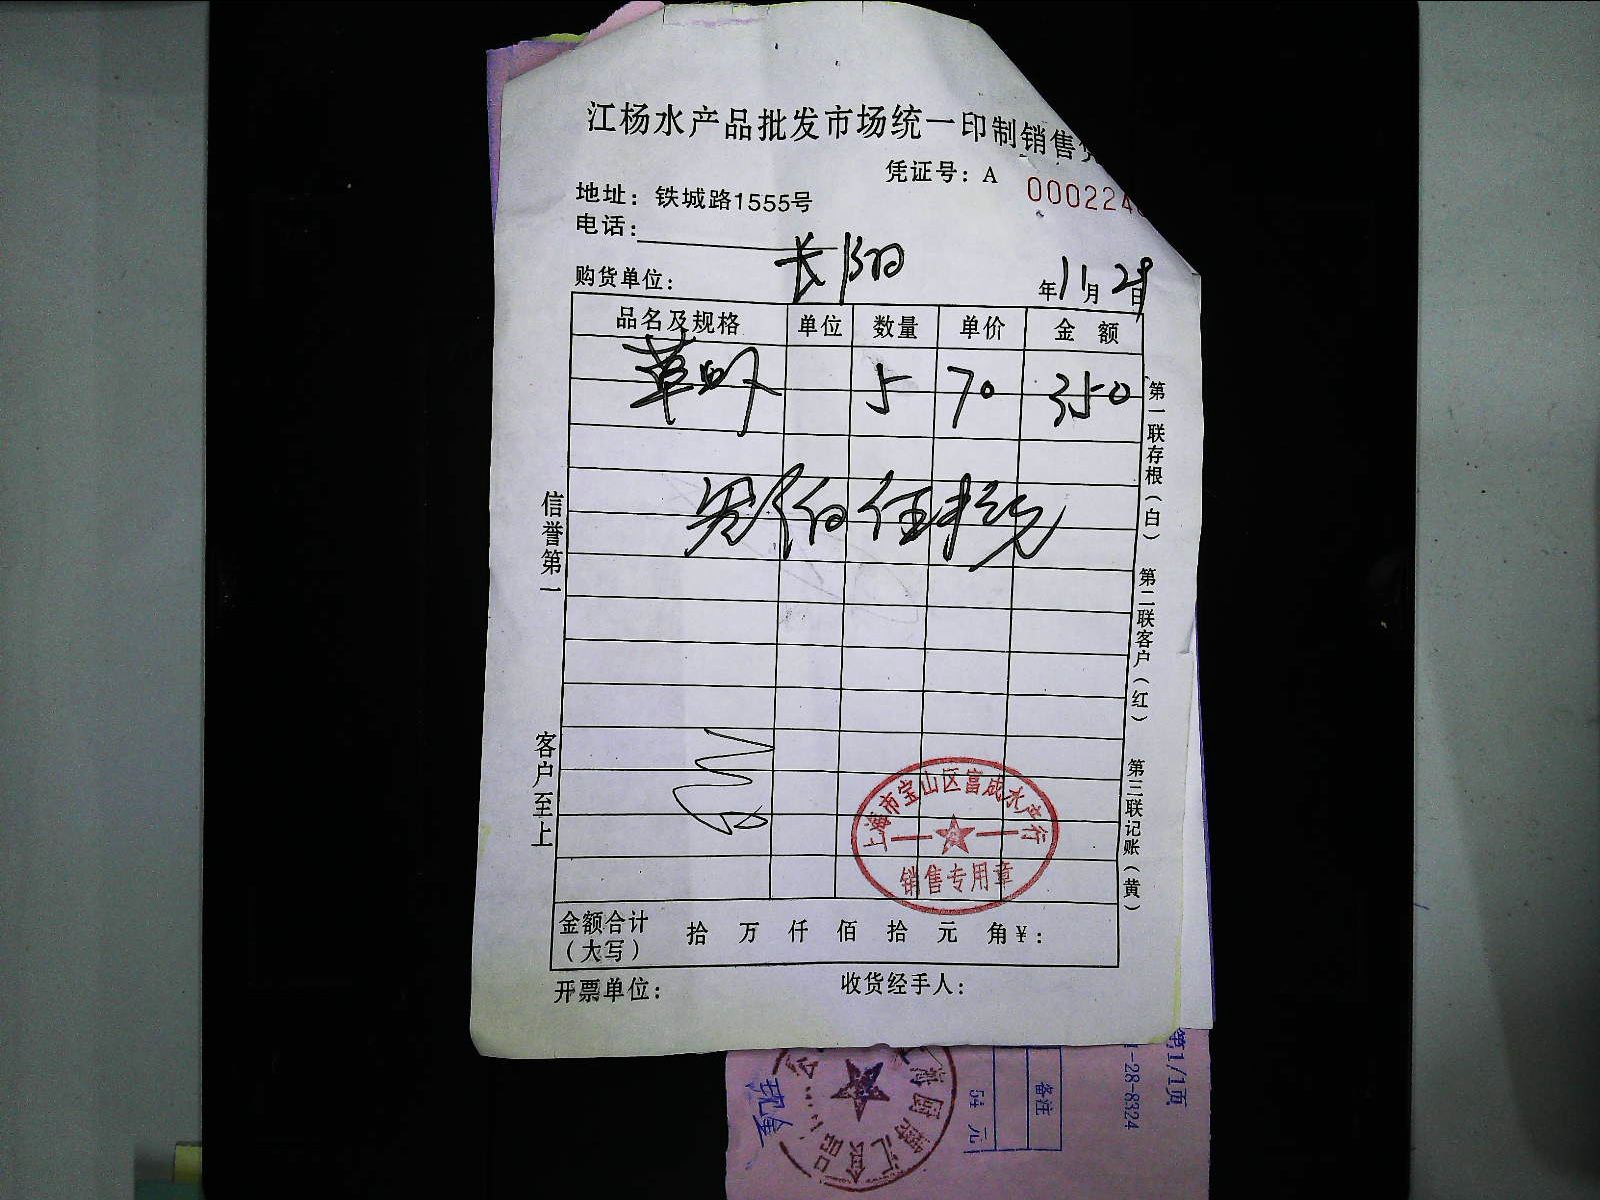 江杨水产品批发市场统一印制销售凭
凭证号：A 000224
地址：铁城路1555号
电话：
购货单位： 长阳 年11月29日
品名及规格 单位 数量 单价 金额
5 70 350
叁佰伍拾元
信誉第一
客户至上
第一联存根（白） 第二联客户（红） 第三联记账（黄）
上海市宝山区富成水产行
销售专用章
金额合计（大写） 拾 万 仟 佰 拾 元 角 ¥：
开票单位： 收货经手人：
第1/1页
1-28-8324
备注
54 元